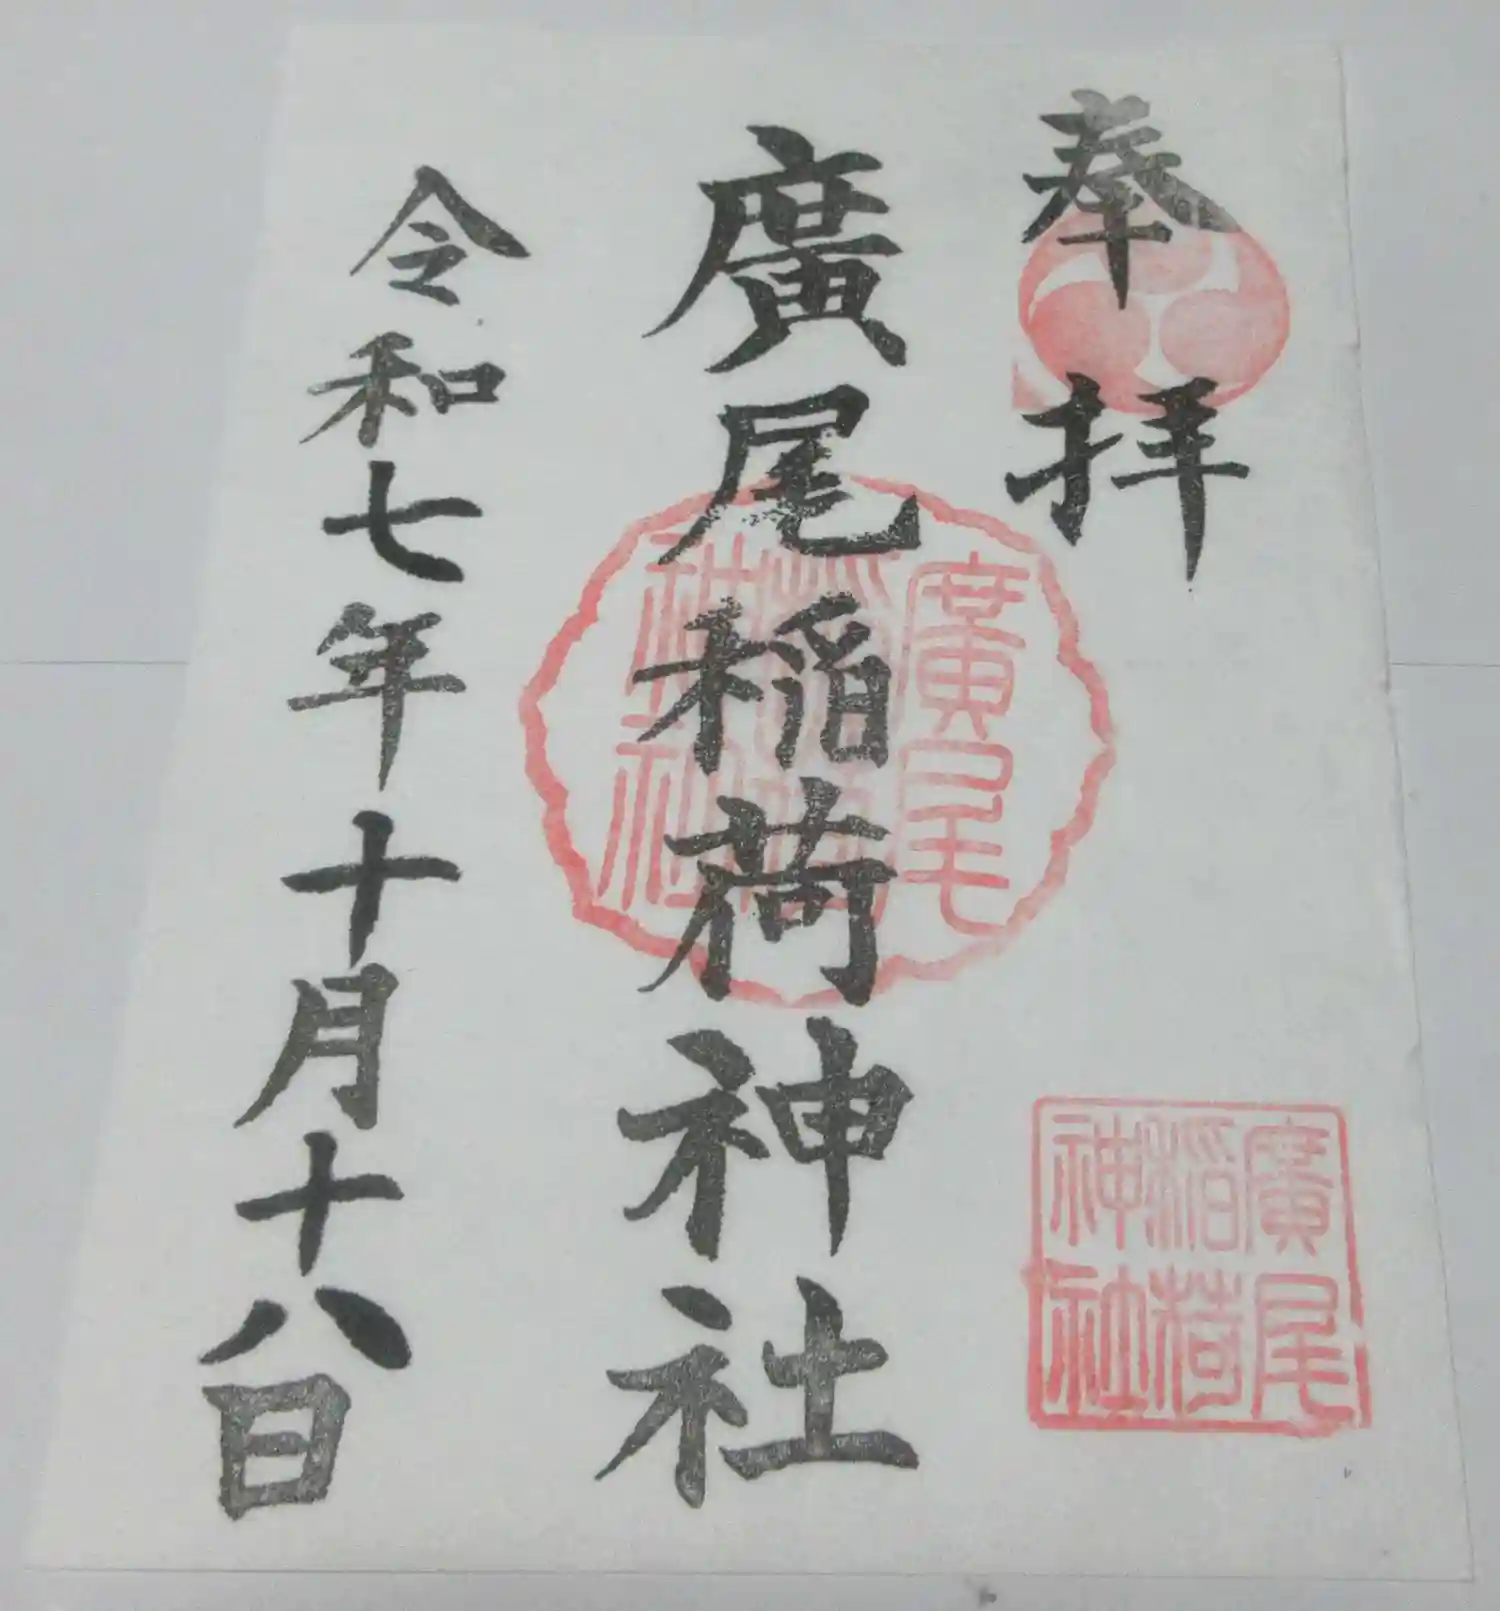 奉拝
廣尾稲荷神社
令和七年十月十八日
廣尾
稲荷
神社
廣尾
稲荷
神社